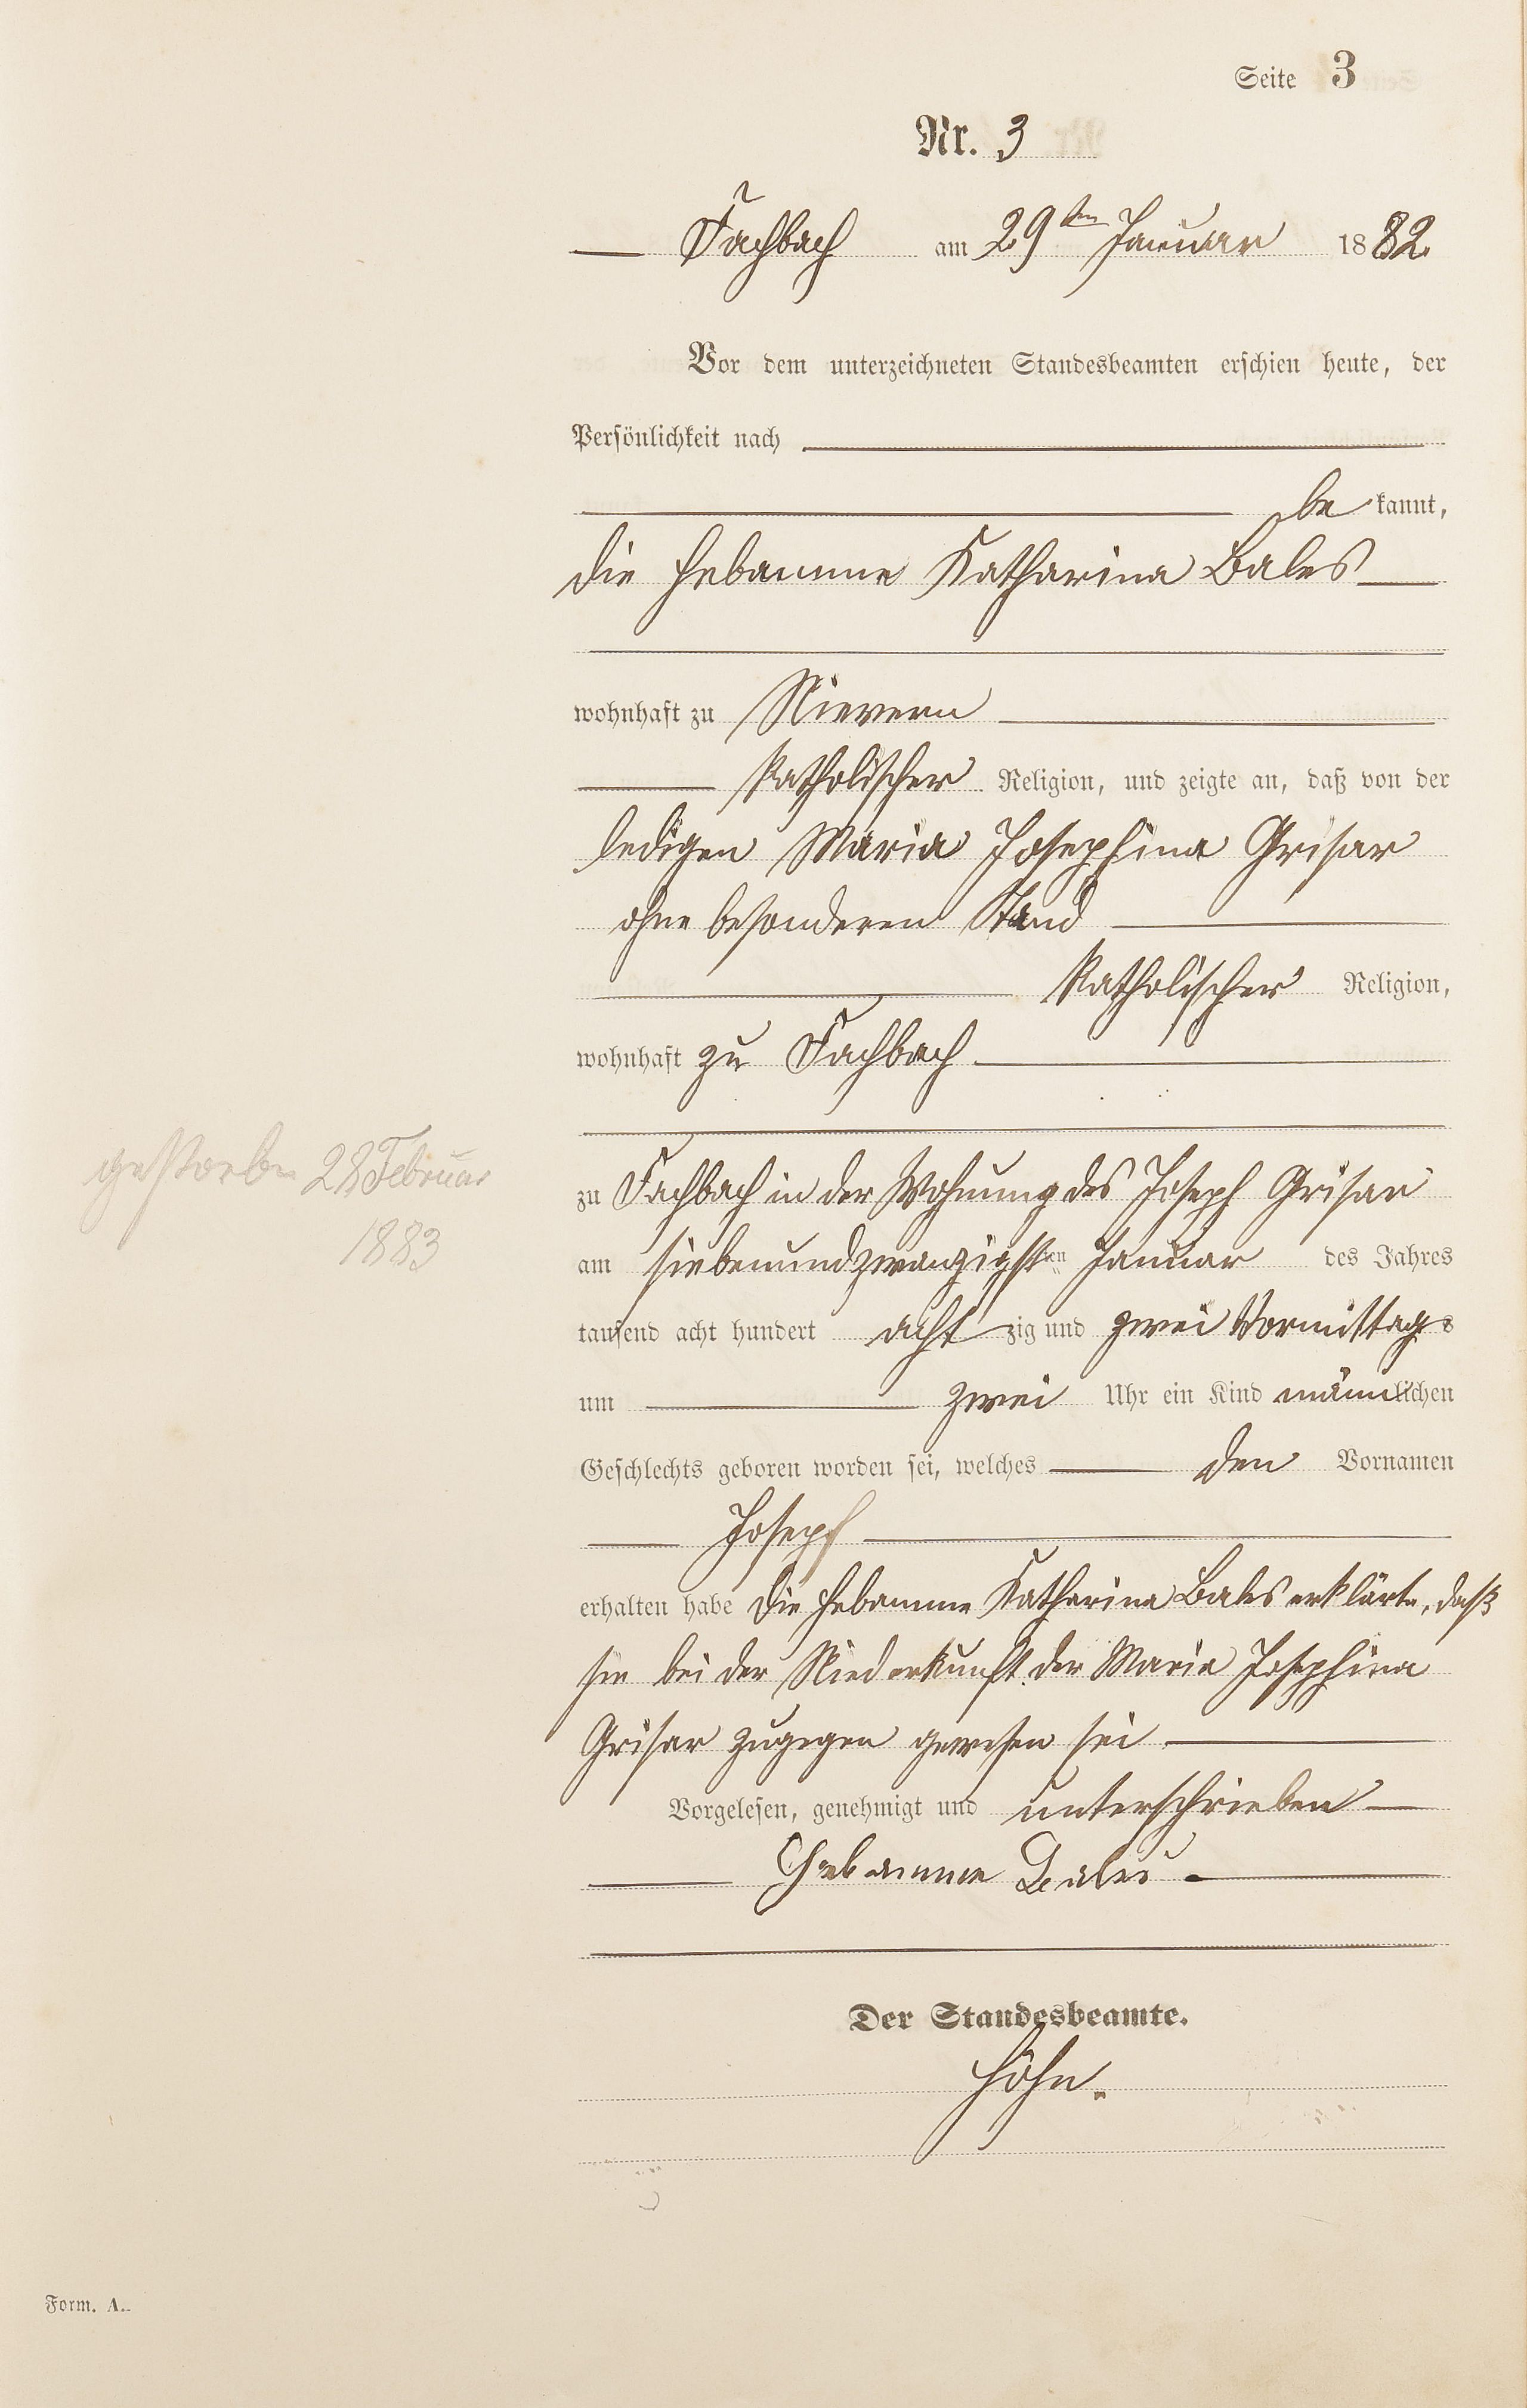 Seite 3
Nr. 3
Fachbach am 29ten Januar 1882.
Vor dem unterzeichneten Standesbeamten erschien heute, der
Persönlichkeit nach
be kannt,
die Hebamme Katharina Bales
wohnhaft zu Nievern
Katholischer Religion, und zeigte an, daß von der
ledigen Maria Josephina Grisar
ohne besonderen Stand
Katholischer Religion,
wohnhaft zu Fachbach
gestorben 28 Februar
1883
zu Fachbach in der Wohnung des Joseph Grisar
am siebenundzwanzigsten Januar des Jahres
tausend acht hundert acht zig und zwei Vormittags
um zwei Uhr ein Kind männlichen
Geschlechts geboren worden sei, welches den Vornamen
Joseph
erhalten habe Die Hebamme Katharina Bales erklärte, daß
sie bei der Niederkunft der Maria Josephina
Grisar zugegen gewesen sei
Vorgelesen, genehmigt und unterschrieben
Hebamme Bales
Der Standesbeamte.
Höhn.
Form. A.